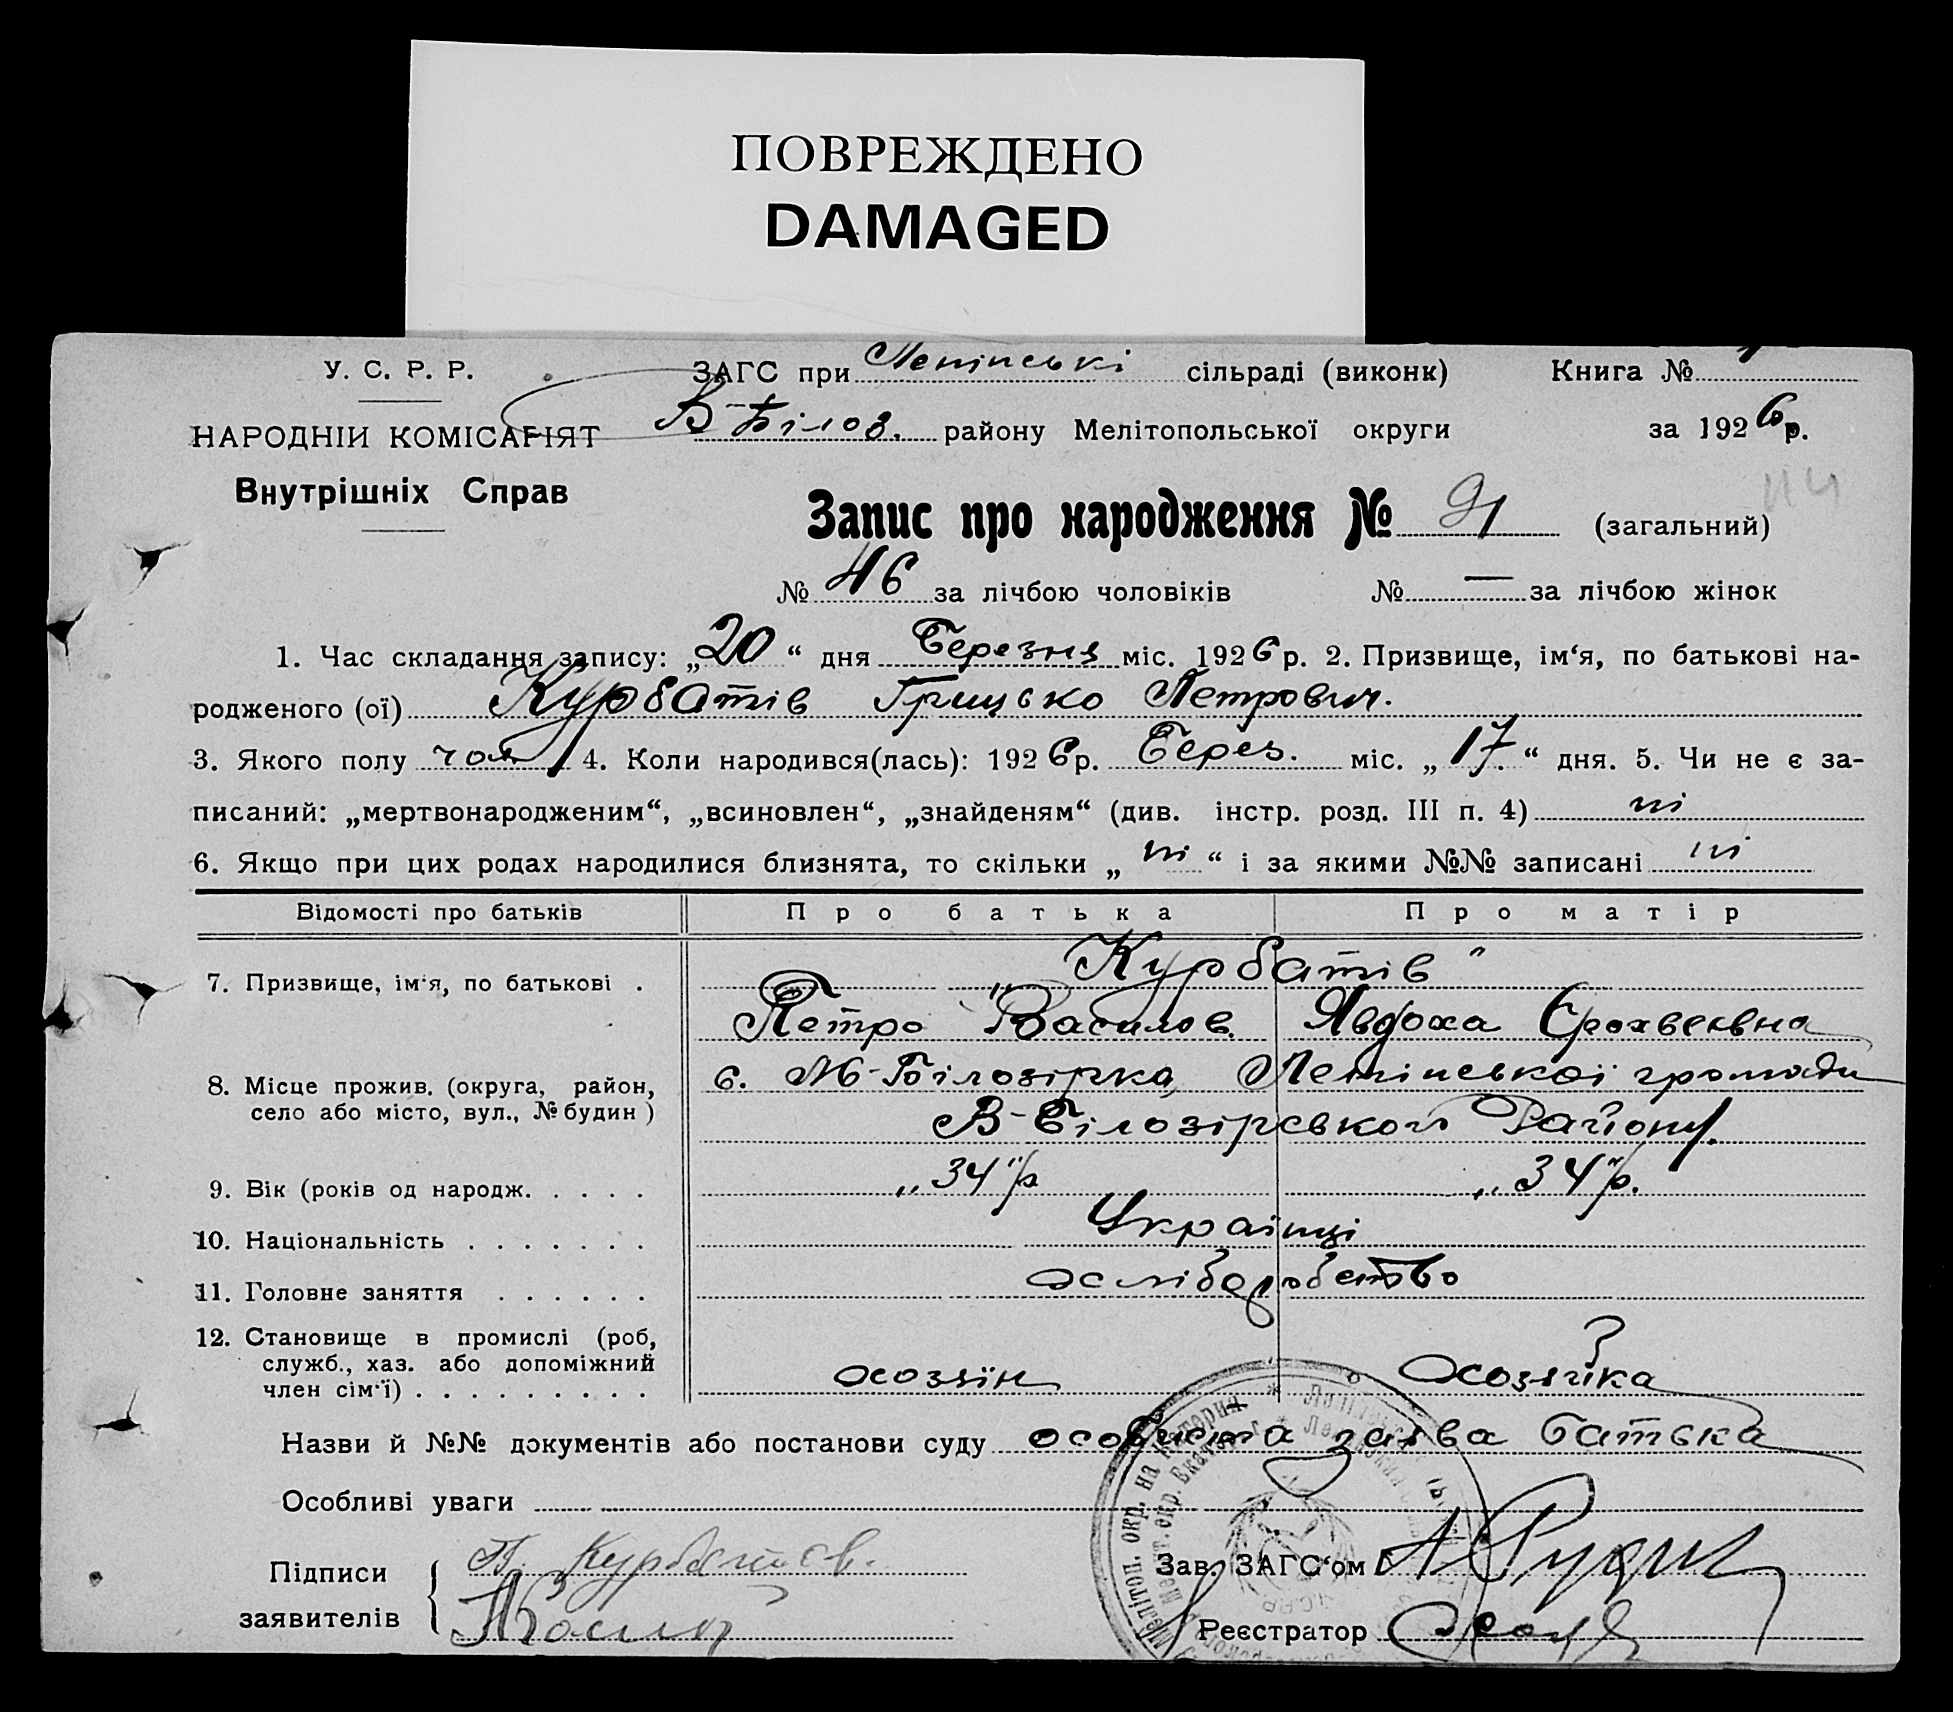 ПОВРЕЖДЕНО
DAMAGED
У. С. Р. Р.
ЗАГС при Ленінські сільраді (виконк) Книга №
НАРОДНІЙ КОМІСАРІЯТ
В-Білоз. району Мелітопольської округи за 1926 р.
Внутрішніх Справ
114
Запис про народження № 91 (загальний)
№ 46 за лічбою чоловіків № — за лічбою жінок
1. Час складання запису: „20“ дня Березня міс. 1926 р. 2. Призвище, ім‘я, по батькові на-
родженого (ої) Курбатів Грицько Петрович.
3. Якого полу чол 4. Коли народився(лась): 1926 р. Берез. міс. „17.“ дня. 5. Чи не є за-
писаний: „мертвонародженим“, „всиновлен“, „знайденям“ (див. інстр. розд. III п. 4) ні
6. Якщо при цих родах народилися близнята, то скільки „ні“ і за якими №№ записані ні
Відомості про батьків Про батька Про матір
„Курбатів"
7. Призвище, ім‘я, по батькові .
Петро Василов. Явдоха Єрохвеєвна
8. Місце прожив. (округа, район,
село або місто, вул., № будин )
с. М-Білозірка, Ленінської громади
В-Білозірського Району.
9. Вік (років од народж. . . . . „34"р „34"р.
10. Національність . . . . . . . Українці
11. Головне заняття . . . . . . хліборобство
12. Становище в промислі (роб,
служб., хаз. або допоміжний
член сім‘ї) . . . . . . . . . хозяїн хозяйка
Назви й №№ документів або постанови суду особиста заява батька
Особливі уваги
Підписи
заявителів
П. Курбатов.
Зав. ЗАГС‘ом
Реєстратор